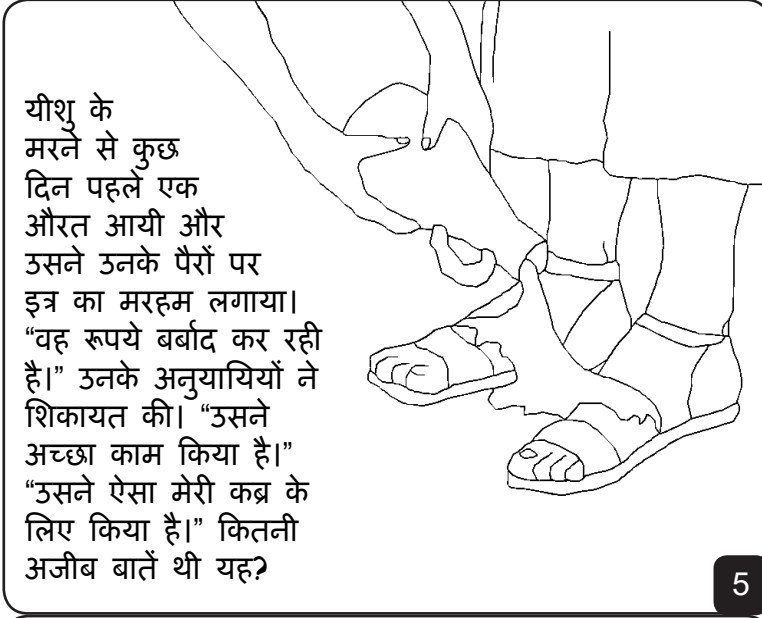 यीशु के
मरने से कुछ
दिन पहले एक
औरत आयी और
उसने उनके पैरों पर
इत्र का मरहम लगाया।
“वह रूपये बर्बाद कर रही
है।” उनके अनुयायियों ने
शिकायत की। “उसने
अच्छा काम किया है।”
“उसने ऐसा मेरी कब्र के
लिए किया है।” कितनी
अजीब बातें थी यह?
5